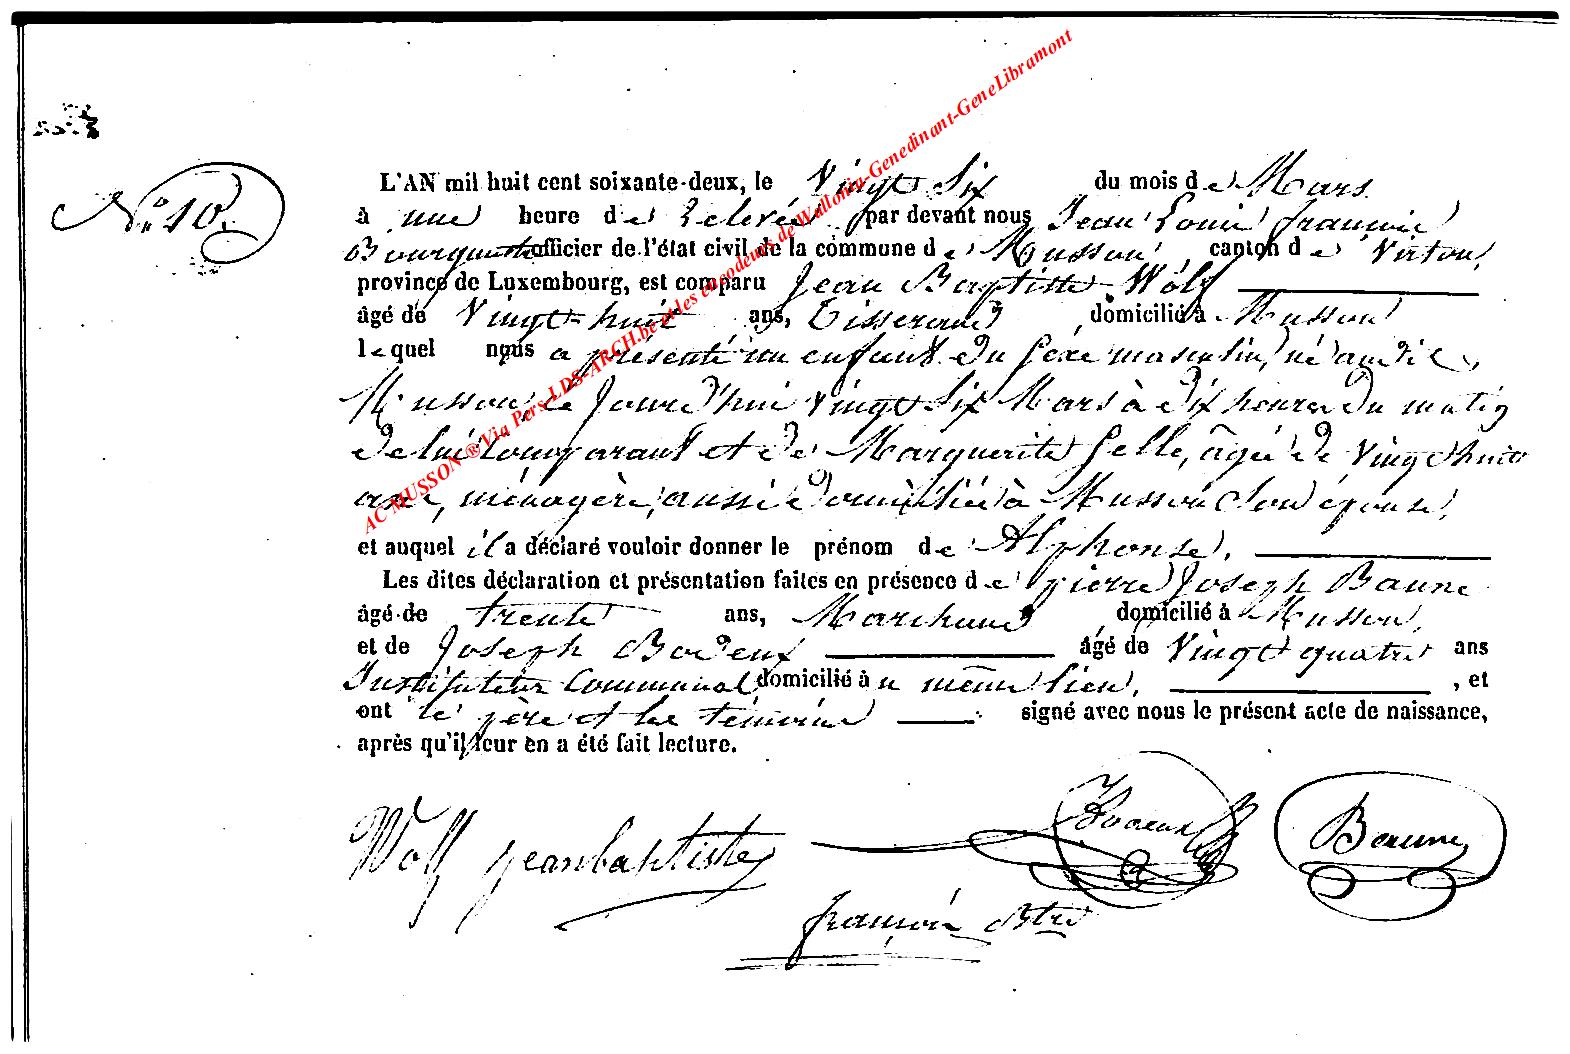 N.° 10.
L'AN mil huit cent soixante-deux, le Vingt Six du mois de Mars
à une heure de relevée par devant nous Jean Louis françois
officier de l'état civil de la commune de Musson, canton de Virton,
province de Luxembourg, est comparu Jean Baptiste Wolf
âgé de Vingt-huit ans, Tisserand domicilié à Musson
lequel nous a présenté un enfant du sexe masculin, né au dit
Musson, le Jourd'hui vingt Six Mars à dix heures du matin
de lui Comparant et de Marguerite Gelle, âgée de vingt huit
ans, ménagère, aussi domiciliée à Musson Son épouse,
et auquel il a déclaré vouloir donner le prénom de Alphonse,
Les dites déclaration et présentation faites en présence de pierre Joseph Baune
âgé de trente ans, Marchand domicilié à Musson,
et de Joseph Bodeux âgé de Vingt quatre ans
Instituteur Communal domicilié au même lieu, , et
ont le père et les témoins signé avec nous le présent acte de naissance,
après qu'il leur en a été fait lecture.
Wolf jeanbaptiste
Beaune
françois Btre
AC MUSSON ® Via Pers-LDS-ARCH.be et les encodeurs de Wallonia-Genedinant-GeneLibramont